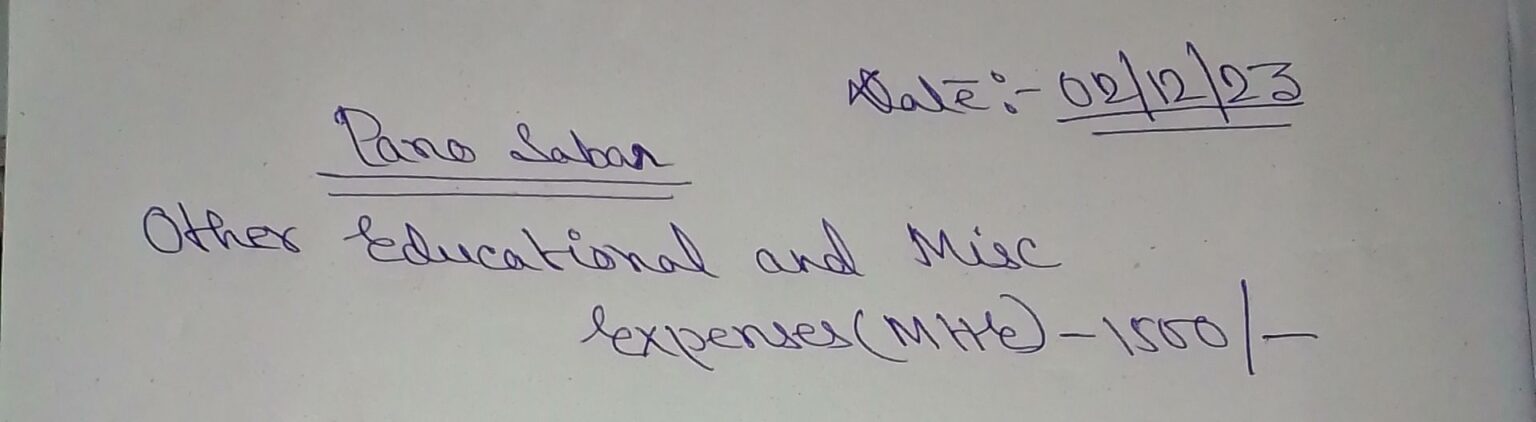 Date:- 02/12/23
Pano Sabar
Other Educational and Misc
Expenses(MHE) - 1500/-